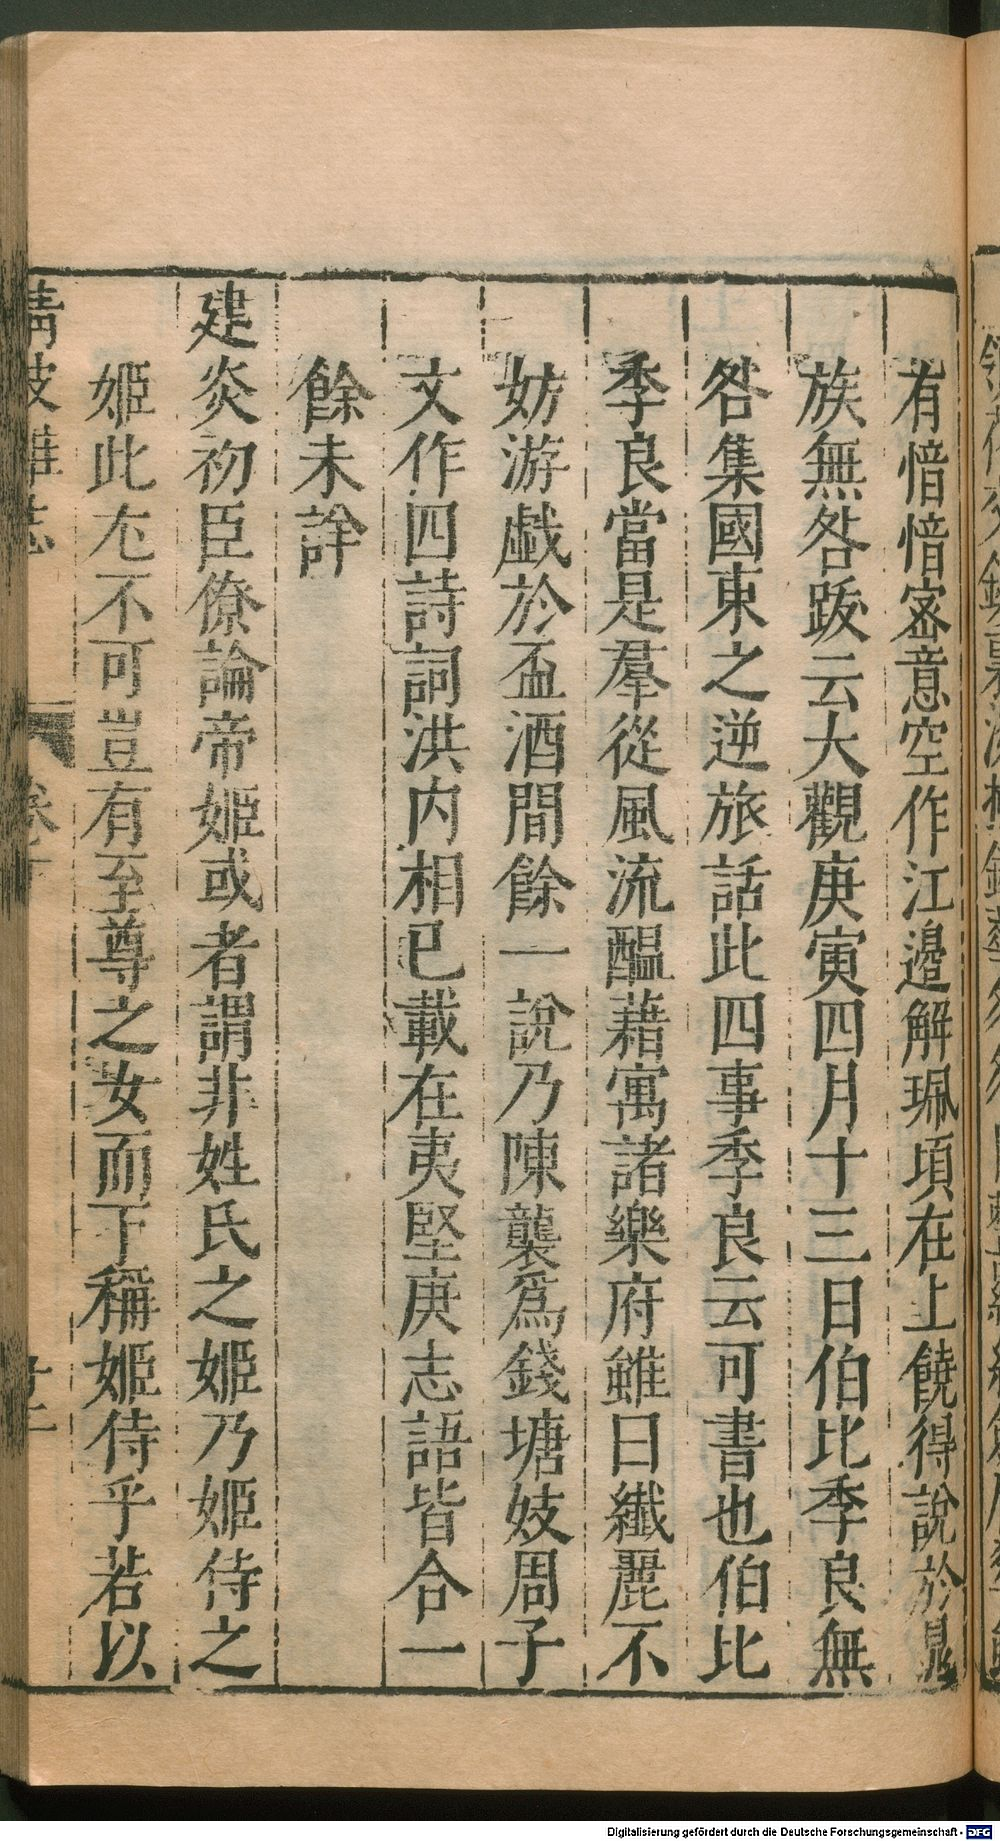 有愔愔密意空作江邊解珮頃在上饒得說於晁
族無咎跋云大觀庚寅四月十三日伯比季良無
咎集國東之逆旅話此四事季良云可書也伯比
季良當是羣從風流醞藉寓諸樂府雖曰纎麗不
妨游戯於盃酒間餘一說乃陳襲爲錢塘妓周子
文作四詩詞洪内相已載在夷堅庚志語皆合一
餘未詳
建炎初臣僚論帝姬或者謂非姓氏之姬乃姬侍之
姬此尤不可豈有至尊之女而下稱姬侍乎若以
清波雜志
卷
Digitalisierung gefördert durch die Deutsche Forschungsgemeinschaft - DFG